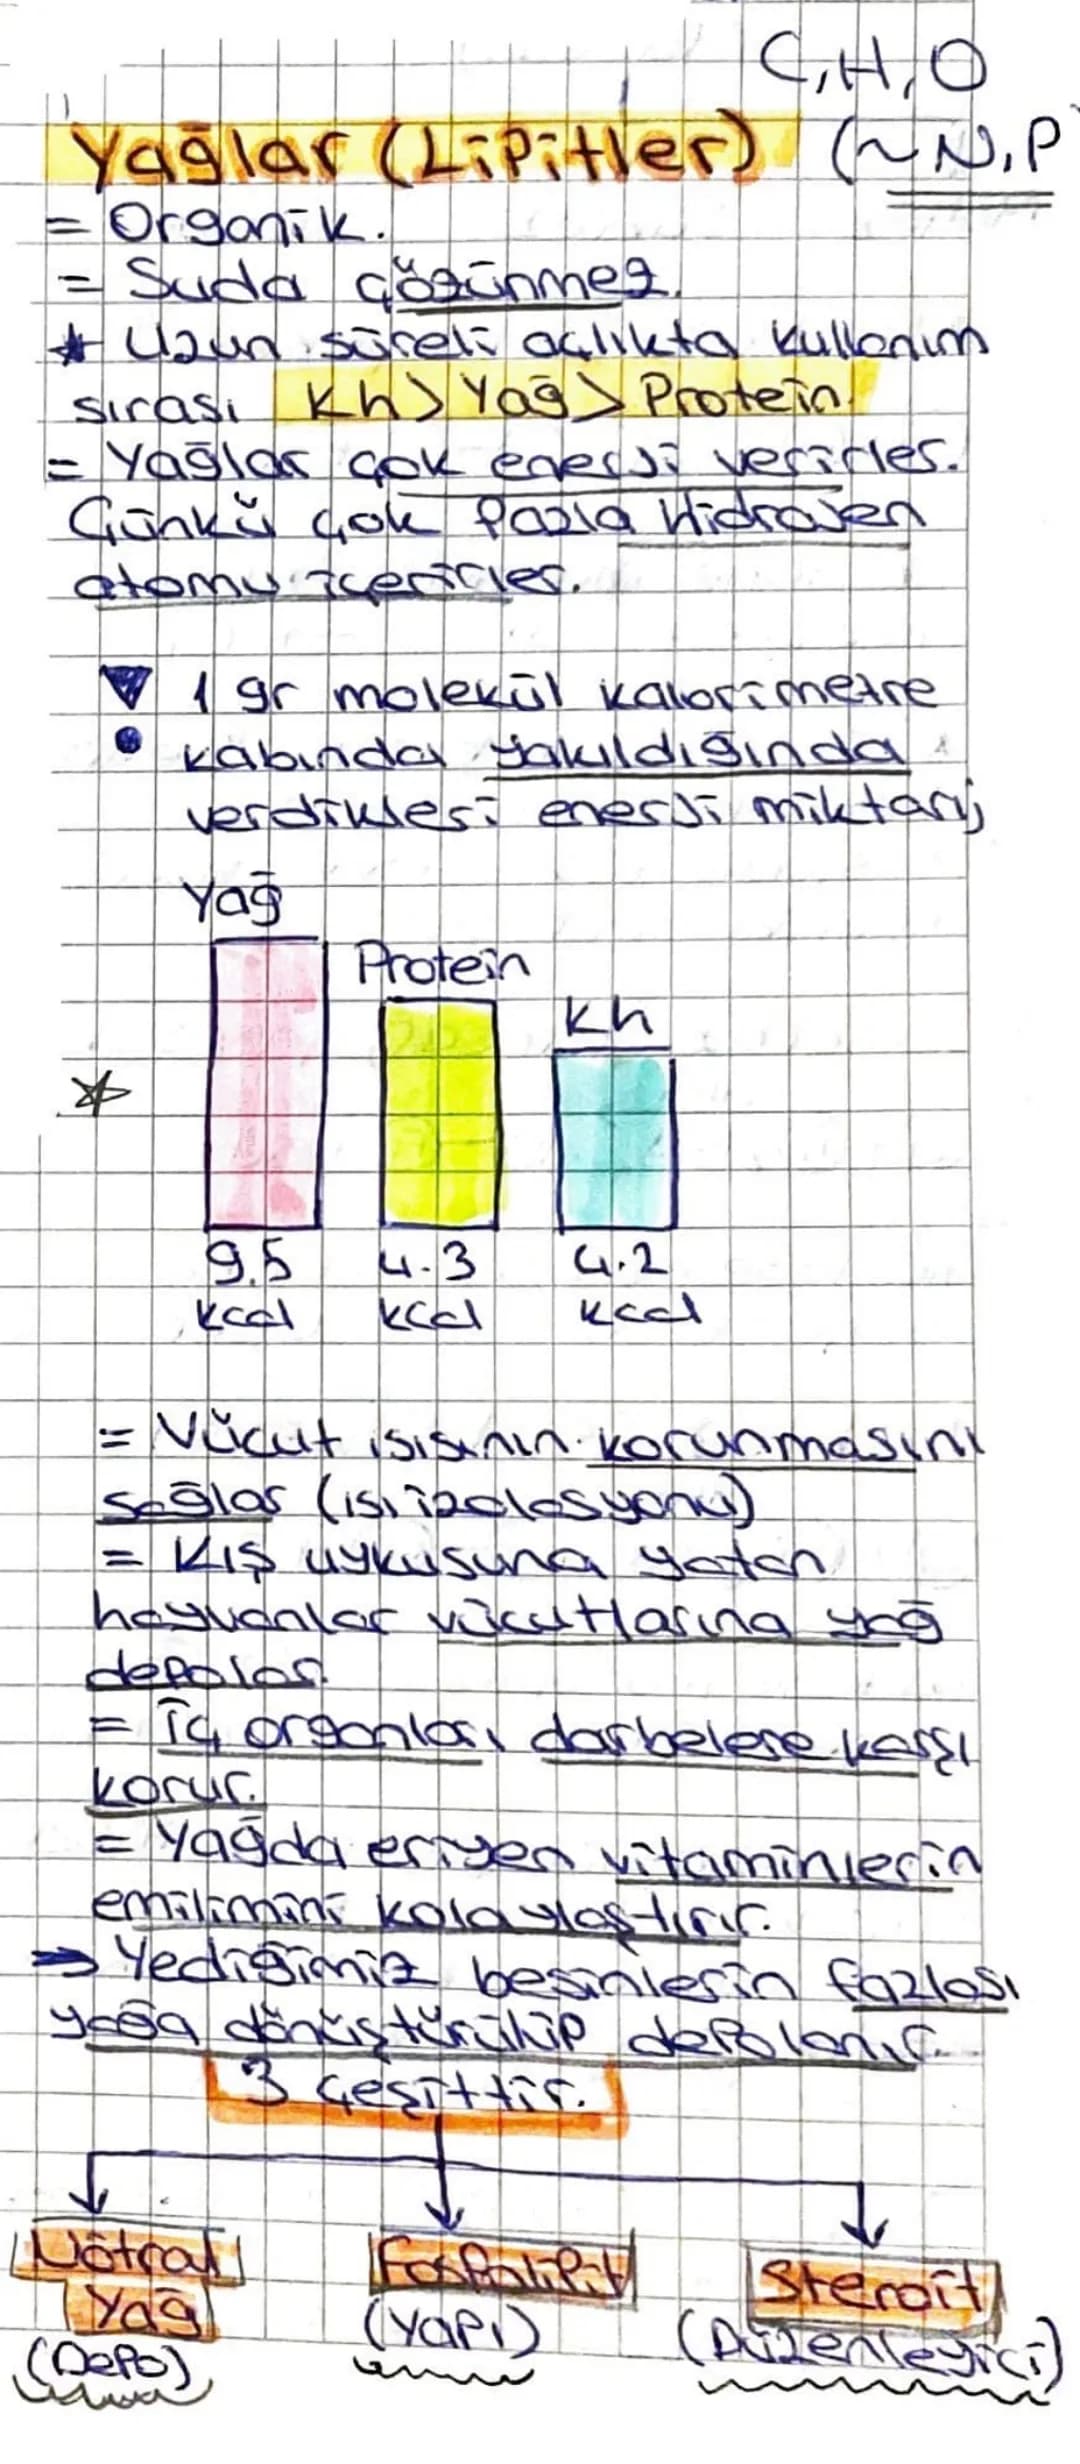 C, H, O
Yağlar (Lipitler) (~ N, P
= Organik.
= Suda çözünmez.
* Uzun süreli açlıkta kullanım
sırası Kh > Yağ > Protein
= Yağlar çok enerji verirler.
Çünkü çok fazla Hidrojen
atomu içerirler.
1 gr molekül kalorimetre
kabında yakıldığında
verdikleri enerji miktarı;
Yağ
Protein
Kh
9.5 4.3 4.2
kcal kcal kcal
= Vücut ısısının korunmasını
sağlar (ısı izolasyonu)
= Kış uykusuna yatan
hayvanlar vücutlarına yağ
depolar.
= İç organları darbelere karşı
korur.
= Yağda eriyen vitaminlerin
emilimini kolaylaştırır.
⇒ Yediğimiz besinlerin fazlası
yağa dönüştürülüp depolanır.
3 çeşittir.
Nötral Yağ (Depo)
Fosfolipit (Yapı)
Steroit (Düzenleyici)